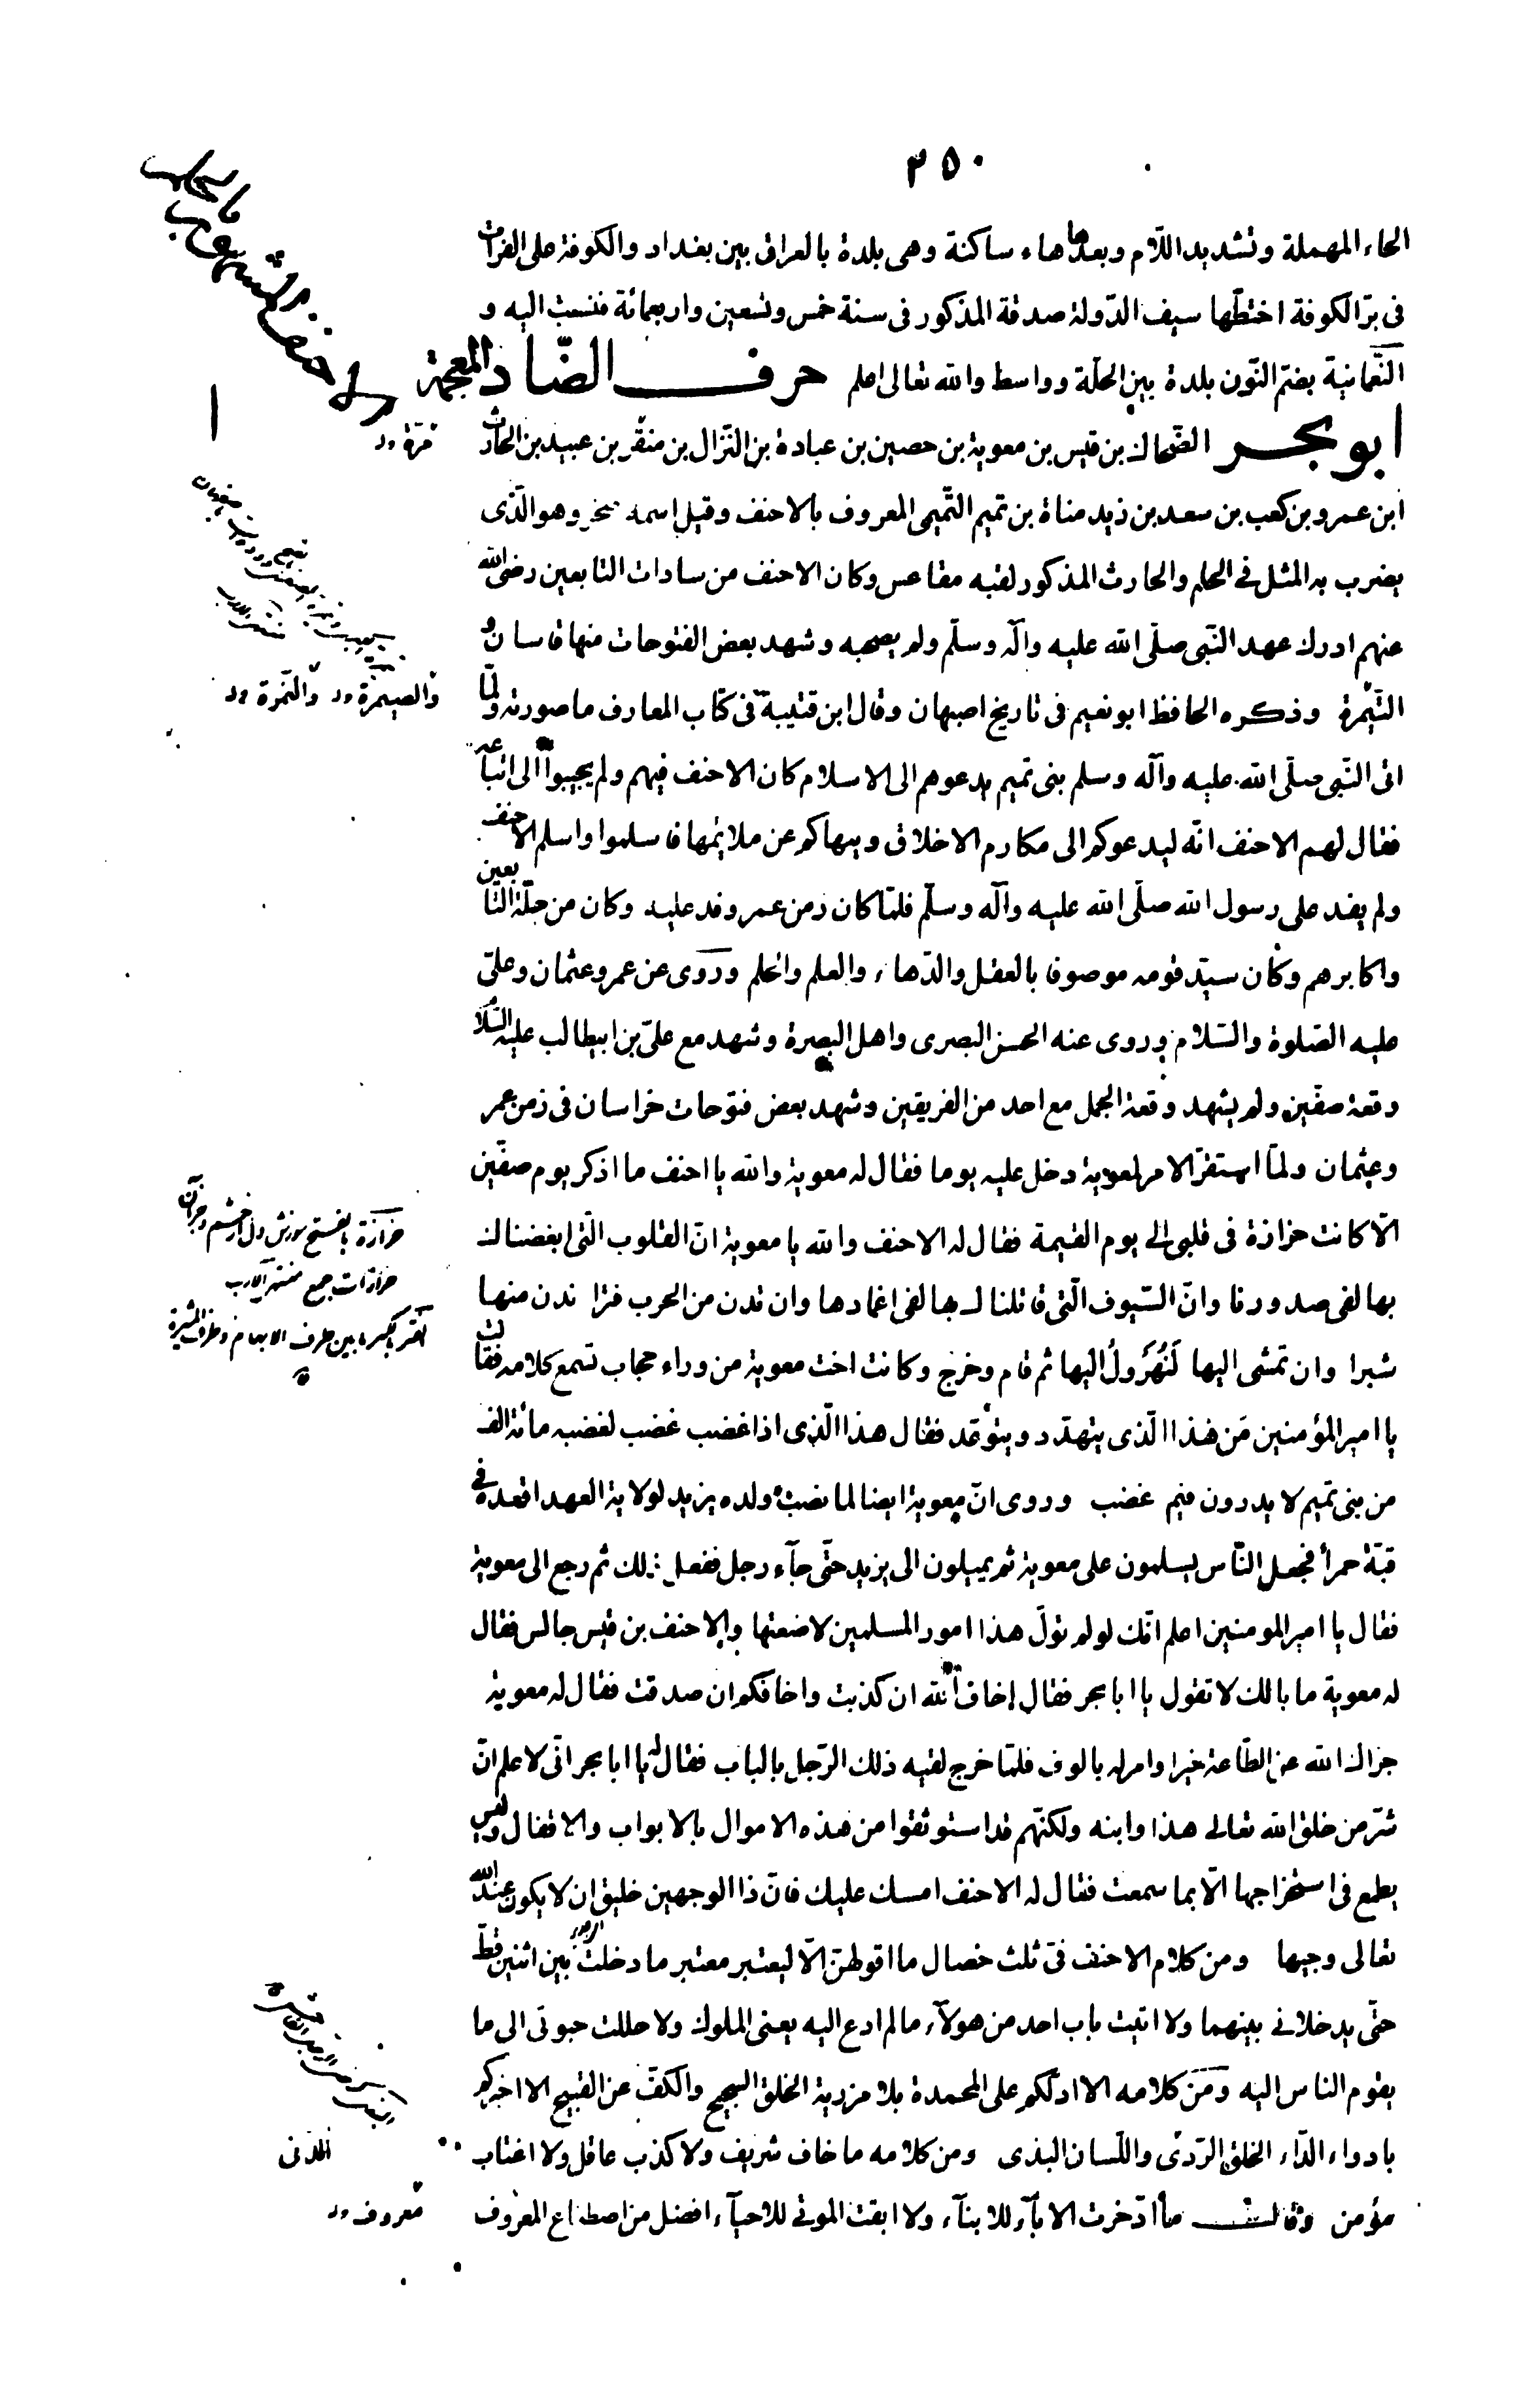 ٢٥٠
الحاء المهملة وتشديد اللّام وبعدها هاء ساكنة وهى بلدة بالعراق بين بغداد والكوفة على الفرات
فى برّ الكوفة اختطّها سيف الدّولة صدقة المذكور فى سنة خمس وتسعين واربعمائة فنسبت اليه و
النّعمانية بضمّ النّون بلدة بين الحلّة وواسط والله تعالى اعلم حرف الضّاد المعجمة
ابو بحر الضّحاك بن قيس بن معوية بن حصين بن عبادة بن النّزال بن منقر بن عبيد بن الحارث
ابن عمرو بن كعب بن سعد بن زيد مناة بن تميم التّميمى المعروف بالاحنف وقيل اسمه صخر وهو الّذى
يضرب به المثل فى الحلم والحارث المذكور لقبه مقاعس وكان الاحنف من سادات التابعين رضى الله
عنهم ادرك عهد النّبى صلّى الله عليه وآله وسلّم ولم يصحبه وشهد بعض الفتوحات منها قاسان و
التّيمرة وذكره الحافظ ابو نعيم فى تاريخ اصبهان وقال ابن قتيبة فى كتاب المعارف ما صورته ولمّا
اتى النّبى صلّى الله عليه وآله وسلم بنى تميم يدعوهم الى الاسلام كان الاحنف فيهم ولم يجيبوا الى اتباعه
فقال لهم الاحنف انّه ليدعوكم الى مكارم الاخلاق وينهاكم عن ملائمها فاسلموا واسلم الاحنف
ولم يفد على رسول الله صلّى الله عليه وآله وسلّم فلمّا كان زمن عمر وفد عليه وكان من جلّة التابعين
واكابرهم وكان سيّد قومه موصوفا بالعقل والدّهاء والعلم والحلم وروى عن عمر وعثمان وعلىّ
عليه الصّلوة والسّلام وروى عنه الحسن البصرى واهل البصرة وشهد مع علىّ بن ابيطالب عليه السّلام
وقعة صفّين ولم يشهد وقعة الجمل مع احد من الفريقين وشهد بعض فتوحات خراسان فى زمن عمر
وعثمان ولمّا استقرّ الامر لمعوية دخل عليه يوما فقال له معوية والله يا احنف ما اذكر يوم صفّين
الّا كانت حزازة فى قلبى الى يوم القيمة فقال له الاحنف والله يا معوية انّ القلوب الّتى ابغضناك
بها لفى صدورنا وانّ السّيوف الّتى قاتلناك بها لفى اغمادها وان تدن من الحرب فترا ندن منها
شبرا وان تمشى اليها لَنُهَروِلُ اليها ثم قام وخرج وكانت اخت معوية من وراء حجاب تسمع كلامه فقالت
يا امير المؤمنين مَن هذا الّذى يتهدّد ويتوعّد فقال هذا الّذى اذا غضب غضب لغضبه مائة الف
من بنى تميم لا يدرون فيم غضب وروى انّ معوية ايضا لما نصب ولده يزيد لولاية العهد اقعده فى
قبّة حمرأ فجعل النّاس يسلمون على معوية ثم يميلون الى يزيد حتّى جآء رجل ففعل ذلك ثم رجع الى معوية
فقال يا امير المومنين اعلم انّك لو لم تولّ هذا امور المسلمين لاضعتها والاحنف بن قيس جالس فقال
له معوية ما بالك لا تقول يا ابا بحر فقال اخاف الله ان كذبت واخافكم ان صدقت فقال له معوية
جزاك الله عن الطّاعة خيرا وامر له بالوف فلمّا خرج لقيه ذلك الرّجل بالباب فقال له يا ابا بحر انّى لاعلم انّ
شرّ من خلق الله تعالى هذا وابنه ولكنّهم قد استوثقوا من هذه الاموال بالابواب والاقفال وليس
يطمع فى استخراجها الّا بما سمعت فقال له الاحنف امسك عليك فانّ ذا الوجهين خليق ان لا يكون عند الله
تعالى وجيها ومن كلام الاحنف فىّ ثلث خصال ما اقولهنّ الّا ليعتبر معتبر ما دخلت بين اثنين قطّ
حتّى يدخلانى بينهما ولا اتيت باب احد من هولآء ما لم ادع اليه يعنى الملوك ولا حللت حبوتى الى ما
يقوم الناس اليه ومن كلامه الا ادلّكم على المحمدة بلا مزرية الخلق السجيح والكفّ عن القبيح الا اخبركم
بادواء الدّاء الخلق الرّدىّ واللّسان البذى ومن كلامه ما خاف شريف ولا كذب عاقل ولا اغتاب
مؤمن وقالــ ما ادّخرت الابآء للابنآء ولا ابقت الموتى للاحيآء افضل من اصطناع المعروف
والصيمرة ود والتمرة ود
حزازة بالفتح سوزش دل از خشم وجز آن
حزازات جمع منتهى الارب
الفتر بالكسر ما بين طرف الابهام وطرف المشيرة
معروف ود